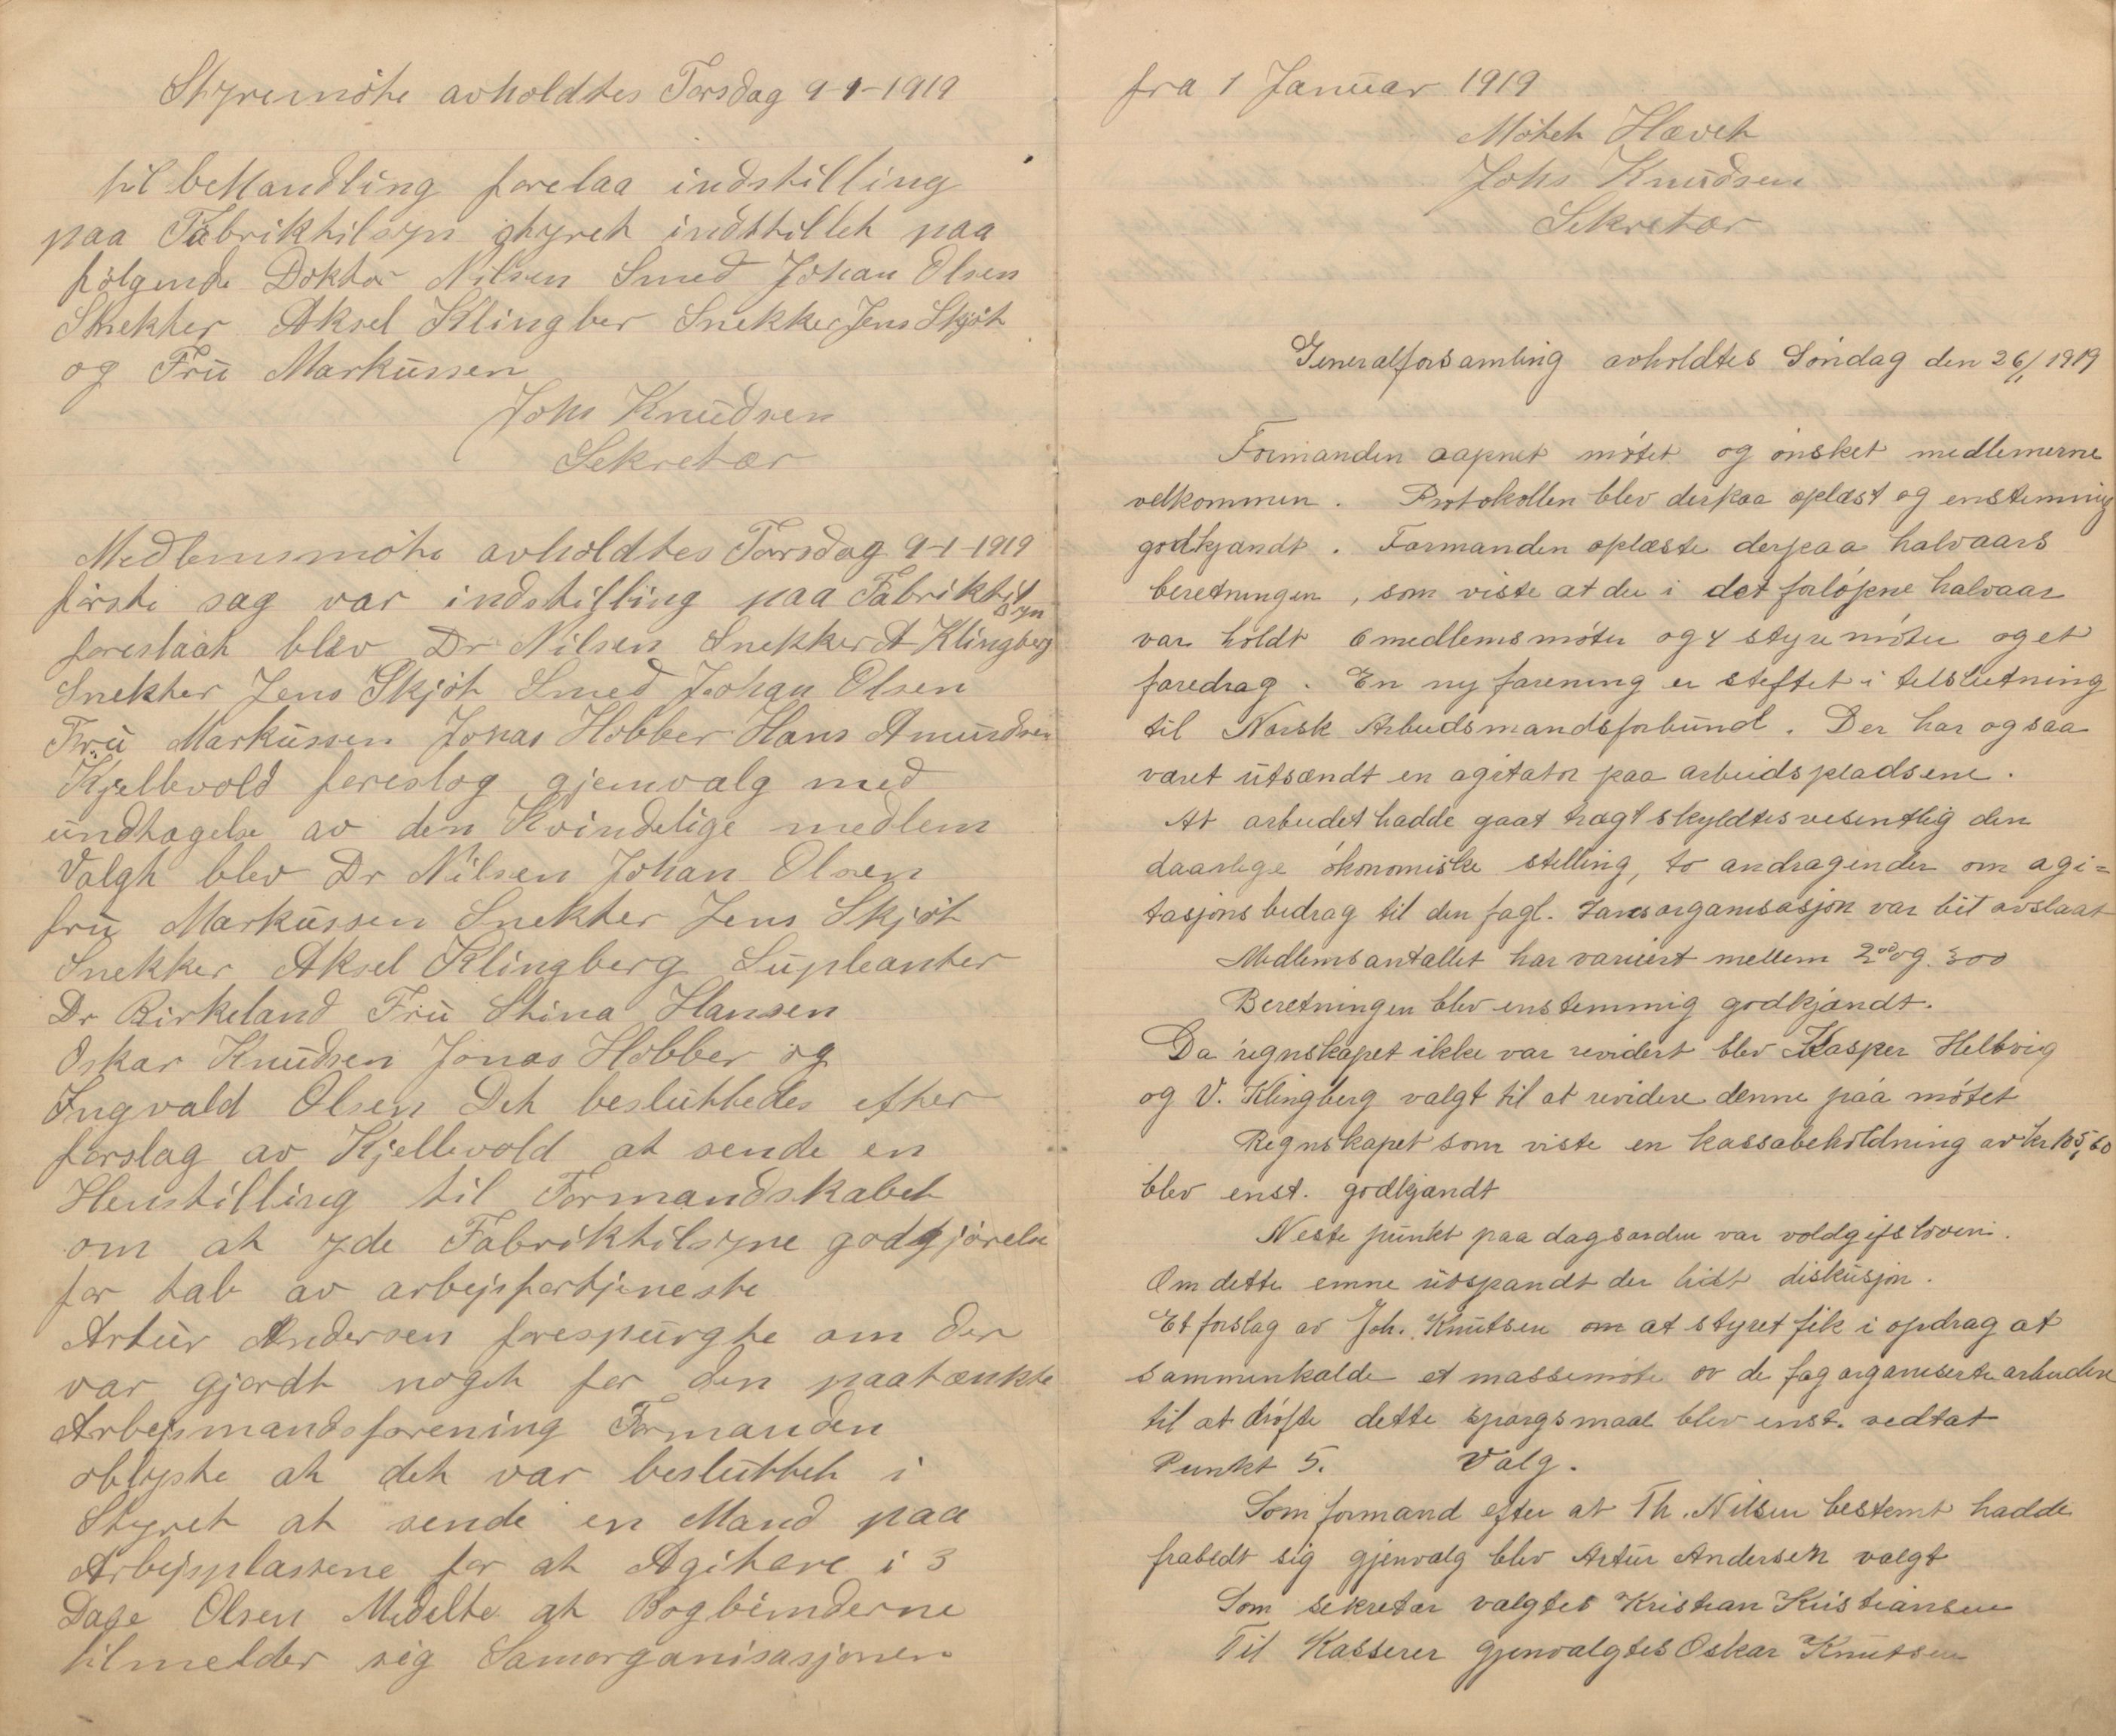 Styremöte avholdtes Torsdag 9-1-1919
til beHandling forelaa indstilling
paa Fabriktilsyn styret indstillet paa
følgende Doktor Nilsen Smed Johan Olsen
Snekker Aksel Klingber Snekker Jens Skjöt
og Frü Markussen
Johs Knudsen
Sekretær
Medlemsmöte avholdtes Torsdag 9-1-1919
förste sag var indstilling paa Fabriktil
syn
foreslaat blev Dr Nilsen Snekker A Klingberg
Snekker Jens Skjöt Smed Johan Olsen
Frü Markussen Jonas Hobber Hans Amundsen
Kjellevold foreslog gjenvalg med
undtagelse av den Kvindelige medlem
Valgt blev Dr Nilsen Johan Olsen
frü Markussen Snekker Jens Skjöt
Snekker Aksel Klingberg Supleanter
Dr Birkeland Frü Stina Hansen
Oskar Knudsen Jonas Hobber og
Ingvald Olsen Det besluttedes efter
forslag av Kjellevold at sende en
Henstilling til Formandskabet
om at yde Fabriktilsyne godtgjörelse
for tab av arbejsfortjeneste
Artur Andersen forespurgte om der
var gjordt noget for den paatænkte
Arbejsmandsforening Formanden
oblyste at det var besluttet i
Styret at sende en Mand paa
Arbejsplassene for at Agitere i 3
Dage Olsen Medelte at Bogbinderne
tilmelder sig Samorganisasjonen
fra 1 Januar 1919
Mötet Hævet
Johs Knudsen
Sekretær
Generalforsamling avholdtes Söndag den 26/1 1919
Formanden aapnet mötet og önsket medlemerne
velkommen. Protokollen blev derpaa oplæst og enstemmig
godkjandt. Formanden oplæste derpaa halvaars
beretningen, som viste at der i det forlöpne halvaar
var holdt 6 medlemsmöter og 4 styremöter og et
foredrag. En ny forening er steftet i telslutning
til Norsk Arbeidsmandsforbund. Der har ogsaa
været utsændt en agitator paa arbeidspladsene.
At arbeidet hadde gaat trægt skyldtes vesentlig den
daarlige ökonomiske stelling, to andragender om agi=
tasjonsbedrag til den fagl. Landsorganisasjon var blit avslaat
Medlemsantallet har variert mellem 200 og 300
Beretningen blev enstemmig godkjandt.
Da regnskapet ikke var revidert blev Kasper Helbvig
og V. Klingberg valgt til at revidere denne paa mötet
Regnskapet som viste en kassabeholdning av kr 105,60
blev enst. godkjandt
Neste punkt paa dagsorden var voldgifsloven.
Om dette emne utspandt der livlt diskusjon.
Et forslag av Joh. Knutsen om at styret fik i opdrag at
sammenkalde et massemöte av de fagorganiserte arbeidere
til at dröfte dette spörgsmaal blev enst. vedtat
Punkt 5. Valg.
Som formand efter at Th. Nilsen bestemt hadde
frabedt sig gjenvalg blev Artur Andersen valgt
Som sekretær valgtes Kristian Kristiansen
Til Kasserer gjenvalgtes Oskar Knutsen